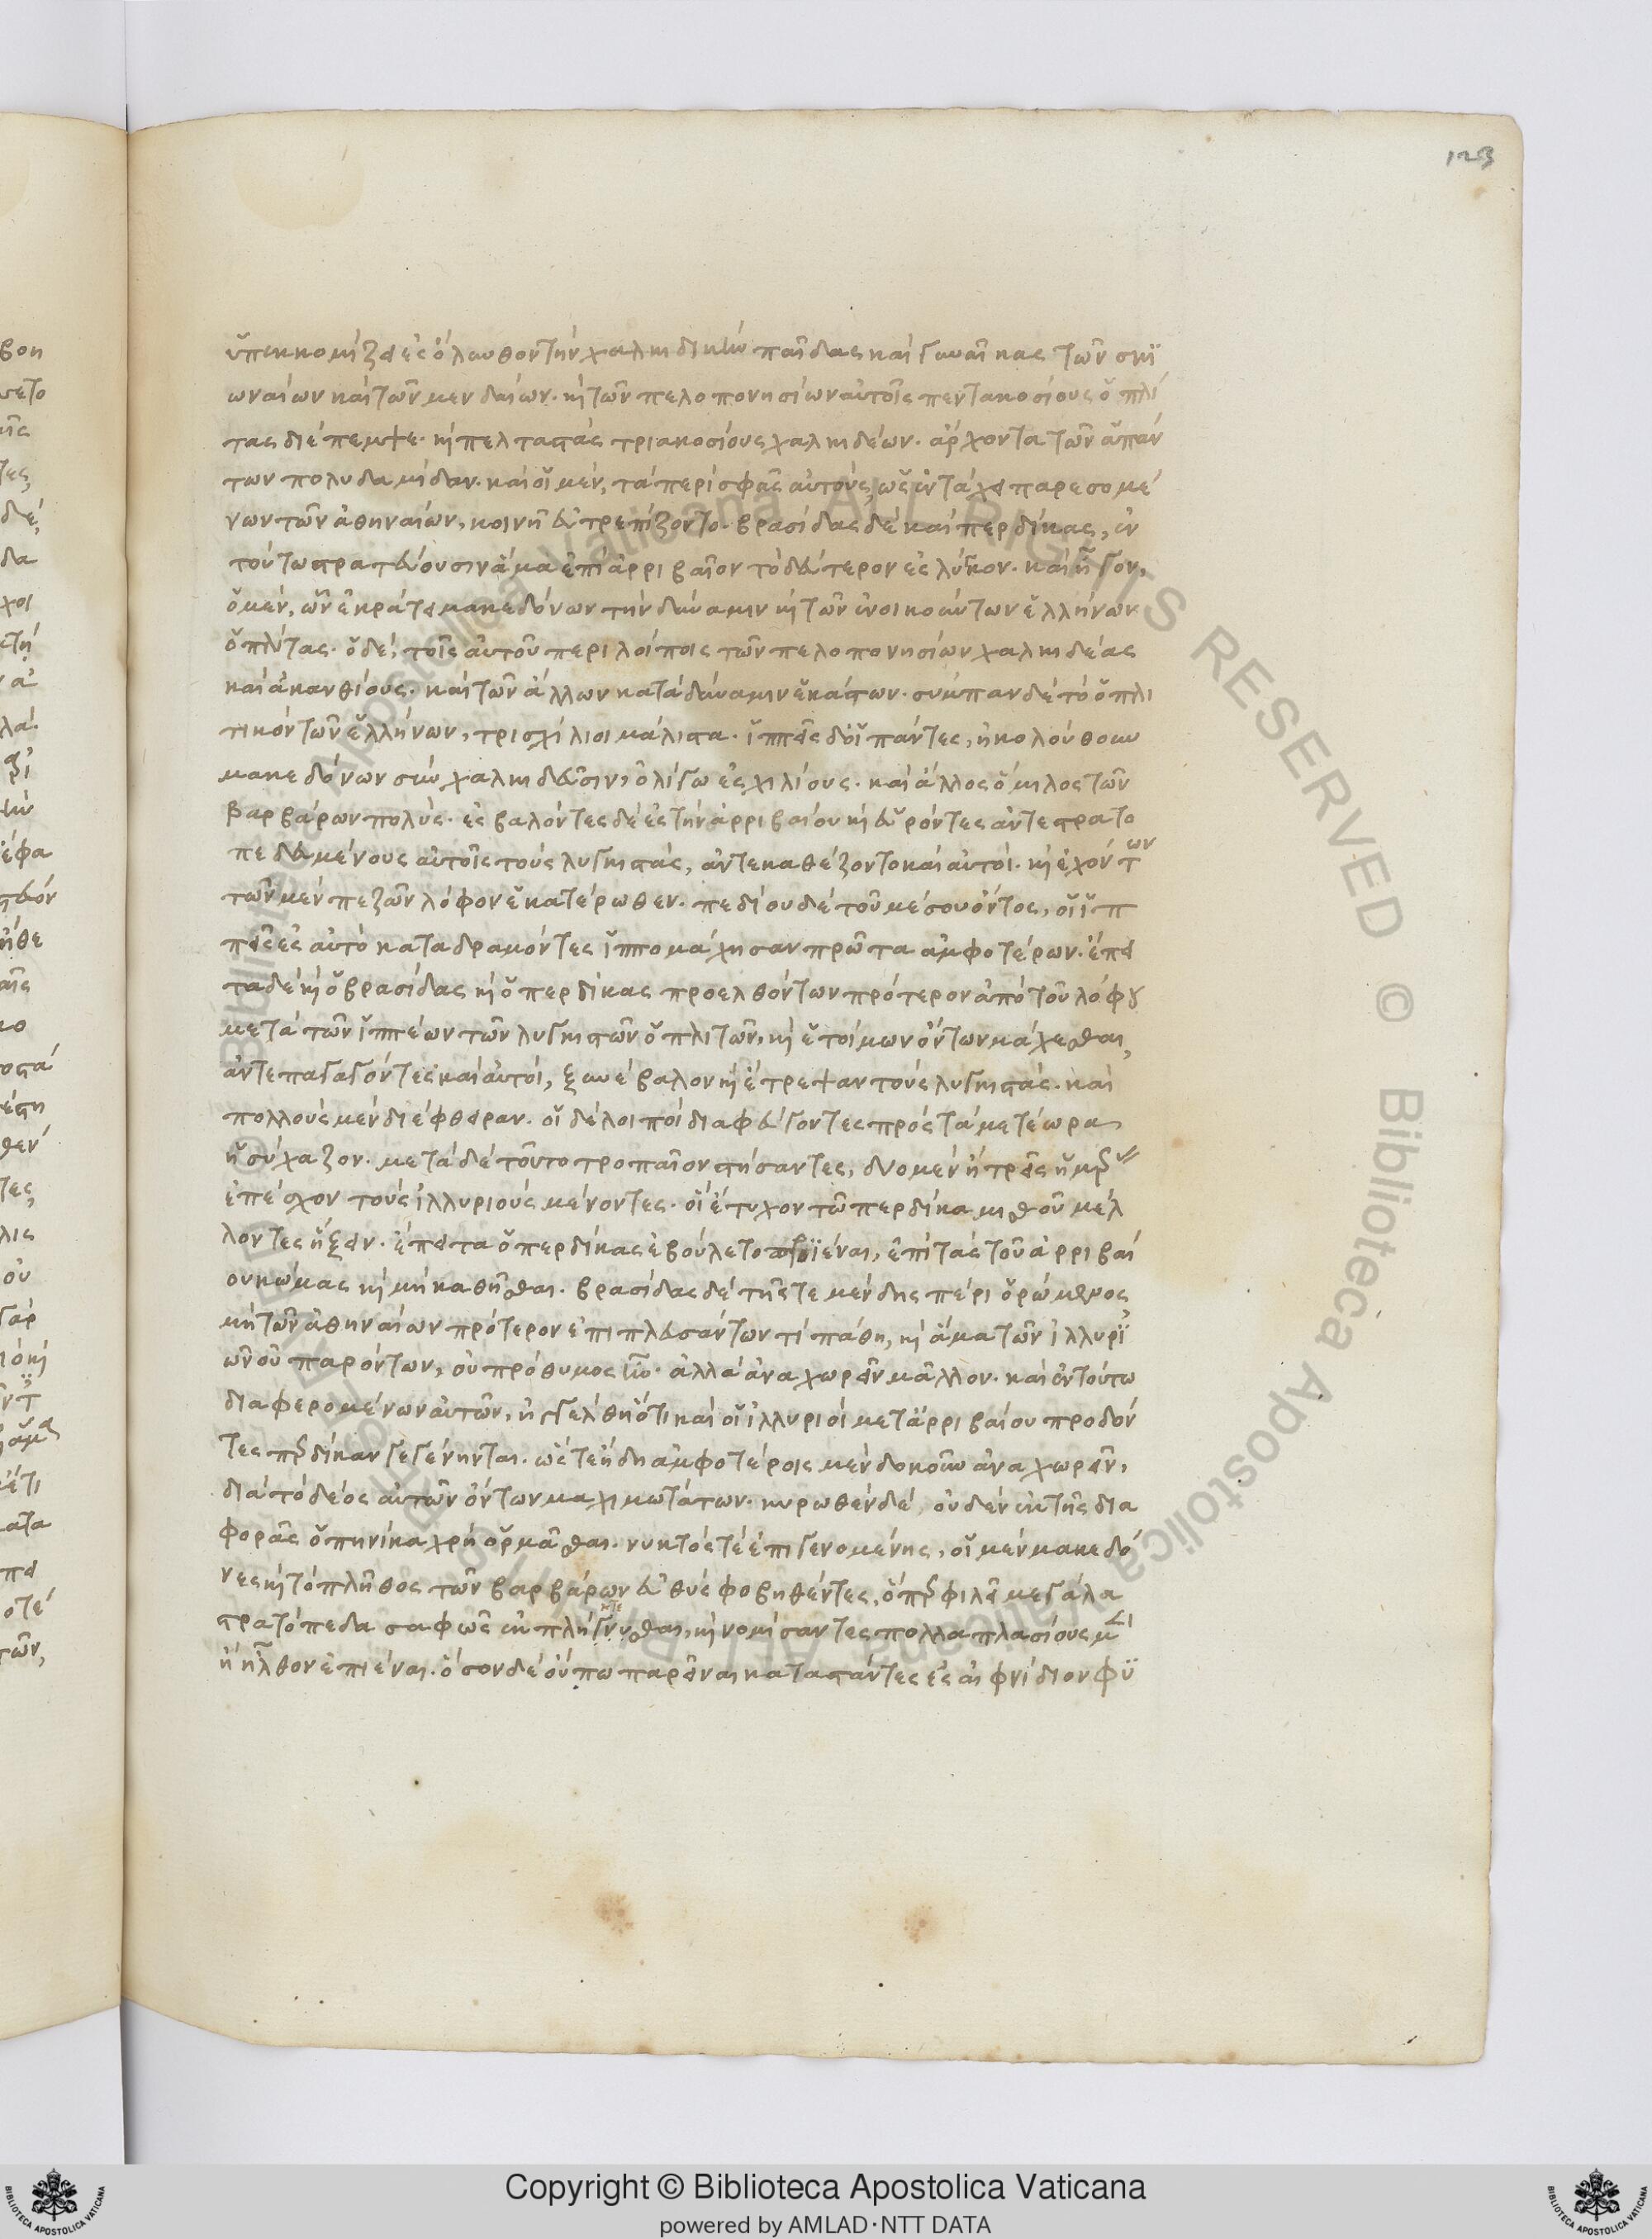 123
ὑπεκκομίζει ἐς ὄλυνθον τὴν χαλκιδικὴν παῖδας καὶ γυναῖκας τῶν σκι
ωναίων καὶ τῶν μενδαίων. καὶ τῶν πελοπονησίων αὐτοῖς πεντακοσίους ὁπλί
τας διέπεμψε. καὶ πελταστὰς τριακοσίους χαλκιδέων. ἄρχοντα τῶν ἁπάν
των πολυδαμίδαν. καὶ οἱ μὲν, τὰ περὶ σφᾶς αὐτούς, ὡς ἐν τάχει παρεσομέ
νων τῶν ἀθηναίων, κοινῆ εὐτρεπίζοντο. βρασίδας δὲ καὶ περδίκας, ἐν
τούτω στρατεύουσιν ἅμα ἐπὶ ἀρριβαῖον τὸ δεύτερον ἐς λύγκον. καὶ ἦγον,
ὁ μὲν, ὧν ἐκράτει μακεδόνων τὴν δύναμιν καὶ τῶν ἐνοικούντων ἑλλήνων
ὁπλίτας. ὁ δέ, τοῖς αὐτοῦ περιλοίποις τῶν πελοπονησίων χαλκιδέας
καὶ ἀκανθίους. καὶ τῶν ἄλλων κατὰ δύναμιν ἑκάστων. σύμπαν δὲ τὸ ὁπλι
τικὸν τῶν ἑλλήνων, τρισχίλιοι μάλιστα. ἱππεῖς δ' οἱ πάντες, ἠκολούθουν
μακεδόνων σὺν χαλκιδεῦσιν, ὀλίγω ἐς χιλίους. καὶ ἄλλος ὅμιλος τῶν
βαρβάρων πολύς. ἐσβαλόντες δὲ ἐς τὴν ἀρριβαίου καὶ εὑρόντες ἀντεστρατο
πεδευμένους αὐτοῖς τοὺς λυγκηστάς, ἀντεκαθέζοντο καὶ αὐτοί. καὶ ἐχόντων
τῶν μὲν πεζῶν λόφον ἑκατέρωθεν. πεδίου δὲ τοῦ μέσου ὄντος, οἱ ἱπ
πεῖς ἐς αὐτὸ καταδραμόντες ἱππομάχησαν πρῶτα ἀμφοτέρων. ἔπει
τα δὲ καὶ ὁ βρασίδας καὶ ὁ περδίκας προελθόντων πρότερον ἀπὸ τοῦ λόφου
μετὰ τῶν ἱππέων τῶν λυγκηστῶν ὁπλιτῶν, καὶ ἑτοίμων ὄντων μάχεσθαι,
ἀντεπαγαγόντες καὶ αὐτοί, ξυνέβαλον καὶ ἔτρεψαν τοὺς λυγκηστάς. καὶ
πολλοὺς μὲν διέφθειραν. οἱ δὲ λοιποὶ διαφεύγοντες πρὸς τὰ μετέωρα
ἡσύχαζον. μετὰ δὲ τοῦτο τροπαῖον στήσαντες, δύο μὲν ἢ τρεῖς ἡμέρας
ἐπέσχον τοὺς ἰλλυριοὺς μένοντες. οἳ ἔτυχον τῶ περδίκα μισθοῦ μέλ
λοντες ἥξειν. ἔπειτα ὁ περδίκας ἐβούλετο προϊέναι, ἐπὶ τὰς τοῦ ἀρριβαί
ου κώμας καὶ μὴ καθῆσθαι. βρασίδας δὲ τῆς τε μένδης πέρι ὁρώμενος
μὴ τῶν ἀθηναίων πρότερον ἐπιπλευσάντων τί πάθη, καὶ ἅμα τῶν ἰλλυρι
ῶν οὐ παρόντων, οὐ πρόθυμος ἦν. ἀλλὰ ἀναχωρεῖν μᾶλλον. καὶ ἐν τούτω
διαφερομένων αὐτῶν, ἠγγέλθη ὅτι καὶ οἱ ἰλλυριοὶ μετ' ἀρριβαίου προδόν
τες περδίκαν γεγένηνται. ὥστε ἤδη ἀμφοτέροις μὲν δοκοῦν ἀναχωρεῖν,
διὰ τὸ δέος αὐτῶν ὄντων μαχιμωτάτων. κυρωθὲν δὲ, οὐδὲν ἐκ τῆς δια
φορᾶς ὁπηνίκα χρὴ ὁρμᾶσθαι. νυκτός τε ἐπιγενομένης, οἱ μὲν μακεδό
νες καὶ τὸ πλῆθος τῶν βαρβάρων εὐθὺς φοβηθέντες, ὅπερ φιλεῖ μεγάλα
στρατόπεδα σαφῶς ἐκπλήγνυσθαι, καὶ νομίσαντες πολλαπλασίους μὲν
ἢ ἦλθον ἐπιέναι. ὅσον δὲ οὔπω παρεῖναι καταστάντες ἐς αἰφνίδιον φυ
Copyright © Biblioteca Apostolica Vaticana
powered by AMLAD・NTT DATA